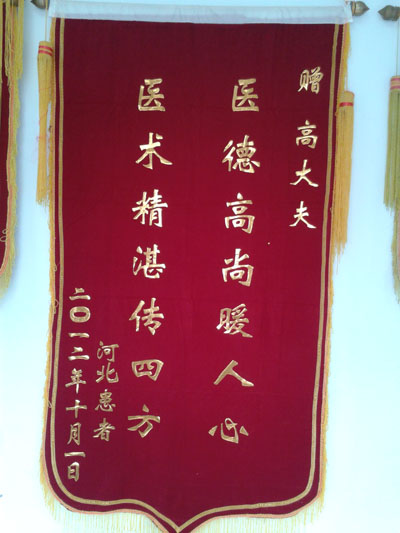 赠高大夫
医德高尚暖人心
医术精湛传四方
河北患者
二〇一二年十月一日